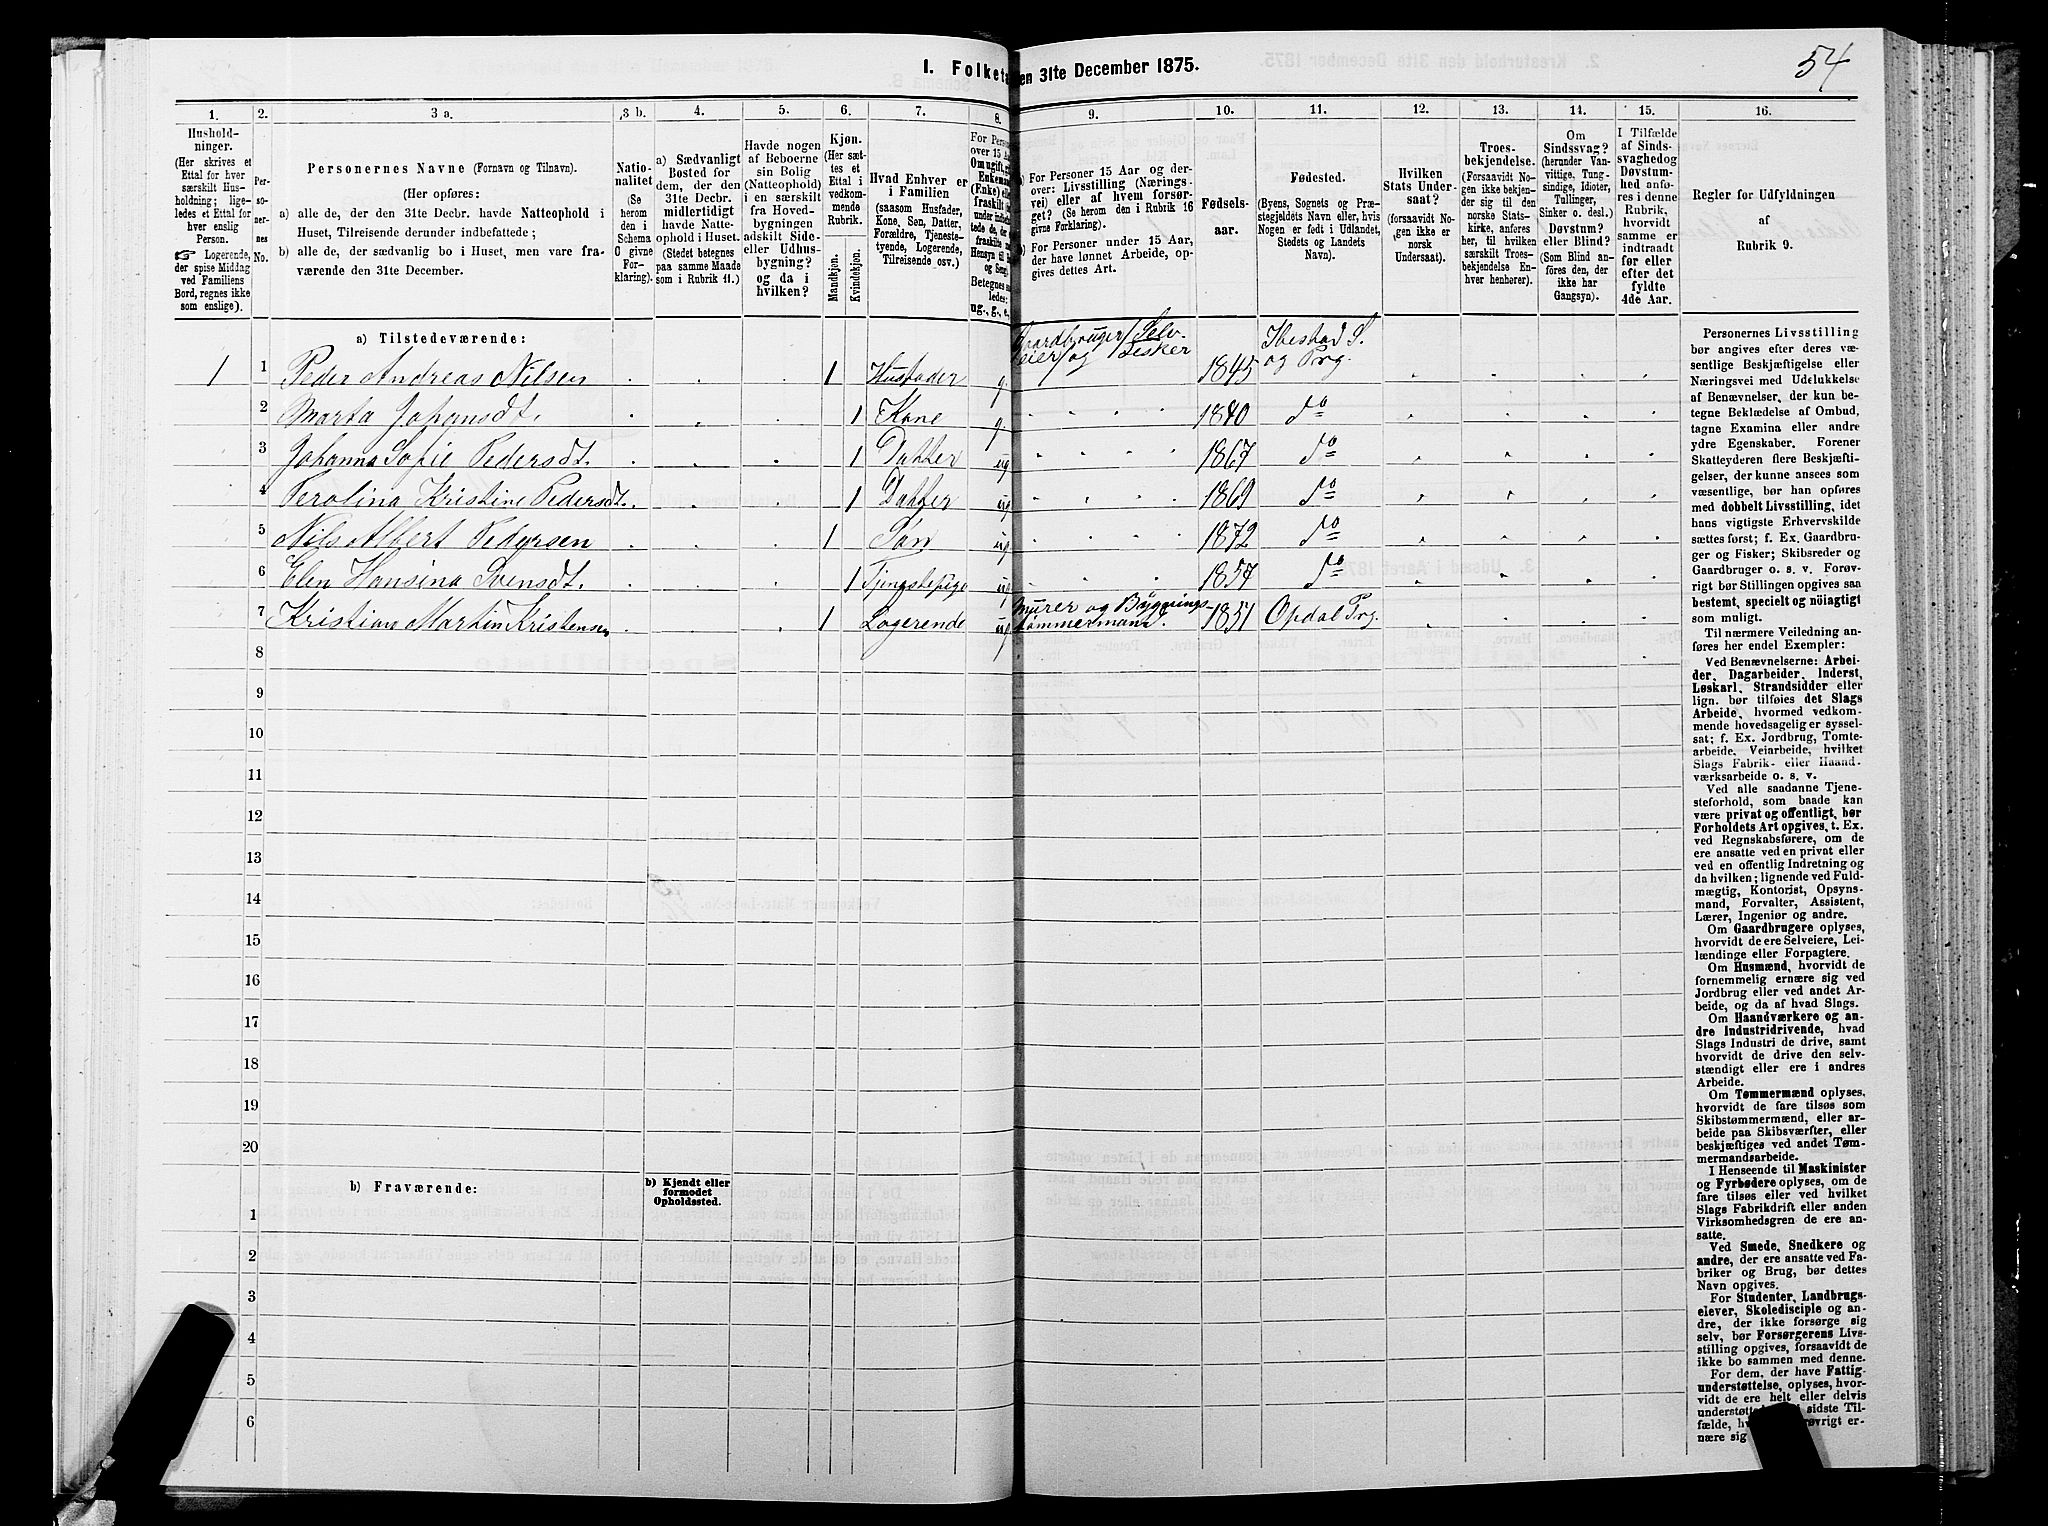 54
I. Folketa en 31te December 1875.
1. 2. 3 a. 3 b. 4. 5. 6. 7. 8. 9. 10. 11. 12. 13. 14. 15. 16.
Hushold-
ninger.
(Her skrives et
Ettal for hver
særskilt Hus-
holdning; lige-
ledes et Ettal for
hver enslig
Person.
☞ Logerende,
der spise Middag
ved Familiens
Bord, regnes ikke
som enslige).
Per-
so-
ner-
nes
No.
Personernes Navne (Fornavn og Tilnavn).
(Her opføres:
a) alle de, der den 31te Decbr. havde Natteophold i
Huset, Tilreisende derunder indbefattede;
b) alle de, der sædvanlig bo i Huset, men vare fra-
værende den 31te December.
Natio-
nalitet
(Se
herom
den i
Schema
O givne
For-
klaring).
a) Sædvanligt
Bosted for
dem, der den
31te Decbr.
midlertidigt
havde Natte-
ophold i Huset.
(Stedet betegnes
paa samme Maade
som i Rubrik 11.)
Havde nogen
af Beboerne
sin Bolig
(Natteophold)
i en særskilt
fra Hoved-
bygningen
adskilt Side-
eller Udhus-
bygning?
og da i
hvilken?
Kjøn.
(Her sæt-
tes et
Ettal i
vedkom-
mende
Rubrik.
Mandkjøn.
Kvindekjøn.
Hvad Enhver er
i Familien
(saasom Husfader,
Kone, Søn, Datter,
Forældre, Tjeneste-
tyende, Logerende,
Tilreisende osv.)
For Person
over 15 Aa
Omugift,
Enkemand
(Enke) elle
fraskilt
Betegnes
ledes:
ug., g., e.,
a) For Personer 15 Aar og der-
over: Livsstilling (Nærings-
vei) eller af hvem forsør-
get? (Se herom den i Rubrik 16
givne Forklaring).
b) For Personer under 15 Aar,
der have lønnet Arbeide, op-
gives dettes Art.
Fødsels-
aar.
Fødested.
(Byens, Sognets og Præ-
stegjeldets Navn eller, hvis
Nogen er født i Udlandet,
Stedets og Landets
Navn).
Hvilken
Stats Under-
saat?
(forsaavidt No-
gen ikke er
norsk
Undersaat).
Troes-
bekjendelse.
(Forsaavidt No-
gen ikke bekjen-
der sig til den
norske Stats-
kirke, anfø-
res, til hvilken
særskilt Troes-
bekjendelse En-
hver henhører).
Om
Sindssvag?
(herunder Van-
vittige, Tung-
sindige, Idioter,
Tullinger,
Sinker o. desl.)
Døvstum?
eller Blind?
(Som Blind an-
føres den, der
ikke har
Gangsyn).
I Tilfælde
af Sinds-
svaghedog
Døvstum-
hed anfø-
res i denne
Rubrik,
hvorvidt
samme er
indtraadt
før eller
efter det
fyldte
4de Aar.
Regler for Udfyldningen
af
Rubrik 9.
a) Tilstedeværende:
1 1 Peder Andreas Nilsen 1 Husfader g. Gaardbruger/Selv-
eier/og Fisker 1845 Ibestad S.
og Prg.
2 Marta Johansdt. 1 Kone g. 1840 do
3 Johanna Sofie Pedersdt. 1 Datter ug. 1867 do
4 Perolina Kristine Pedersdt. 1 Datter ug. 1869 do
5 Nils Albert Pedersen 1 Søn ug. 1872 do
6 Elen Hansina Svensdt. 1 Tjenstepige ug. 1857 do
7 Kristian Martin Kristensen 1 Logerende ug. Murer og Bygnings-
tømmermand. 1851 Opdal Prg.
8
9
10
11
12
13
14
15
16
17
18
19
20
b) Fraværende:
b) Kjendt eller
formodet
Opholdssted.
1
2
3
4
5
6
Personernes Livsstilling
bør angives efter deres væ-
sentlige Beskjæftigelse eller
Næringsvei med Udelukkelse
af Benævnelser, der kun be-
tegne Beklædelse af Ombud,
tagne Examina eller andre
ydre Egenskaber. Forener
Skatteyderen flere Beskjæfti-
gelser, der kunne ansees som
væsentlige, bør han opføres
med dobbelt Livsstilling, idet
hans vigtigste Erhvervskilde
sættes først; f. Ex. Gaardbru-
ger og Fisker; Skibsreder og
Gaardbruger o. s. v. Forøv-
rigt bør Stillingen opgives saa
bestemt, specielt og nöiagtigt
som muligt.
Til nærmere Veiledning an-
føres her endel Exempler:
Ved Benævnelserne: Arbei-
der, Dagarbeider, Inderst,
Løskarl, Strandsidder eller
lign. bør tilføies det Slags
Arbeide, hvormed vedkom-
mende hovedsagelig er syssel-
sat; f. Ex. Jordbrug, Tomte-
arbeide, Veiarbeide, hvilket
Slags Fabrik- eller Haand-
værksarbeide o. s. v.
Ved alle saadanne Tjene-
steforhold, som baade kan
være privat og offentligt, bør
Forholdets Art opgives, t. Ex.
ved Regnskabsførere, om de
ere ansatte ved en privat eller
ved en offentlig Indretning og
da hvilken; lignende ved Fuld-
mægtig, Kontorist, Opsyns-
mand, Forvalter, Assistent,
Lærer, Ingeniør og andre.
Om Gaardbrugere oplyses,
hvorvidt de ere Selveiere, Lei-
lændinge eller Forpagtere.
Om Husmænd, hvorvidt de
fornemmelig ernære sig ved
Jordbrug eller ved andet Ar-
beide, og da af hvad Slags.
Om Haandværkere og an-
dre Industridrivende, hvad
Slags Industri de drive, samt
hvorvidt de drive den selv-
stændigt eller ere i andres
Arbeide.
Om Tømmermænd oplyses,
hvorvidt de fare tilsøs som
Skibstømmermænd, eller ar-
beide paa Skibsværfter, eller
beskjæftiges ved andet Tøm-
mermandsarbeide.
I Henseende til Maskinister
og Fyrbødere oplyses, om de
fare tilsøs eller ved hvilket
Slags Fabrikdrift eller anden
Virksomhedsgren de ere an-
satte.
Ved Smede, Snedkere og
andre, der ere ansatte ved Fa-
briker og Brug, bør dettes
Navn opgives.
For Studenter, Landbrugs-
elever, Skoledisciple og an-
dre, der ikke forsørge sig
selv, bør Forsørgerens Livs-
stilling opgives, forsaavidt de
ikke bo sammen med denne.
For dem, der have Fattig-
understøttelse, oplyses, hvor-
vidt de ere helt eller delvis
understøtted i sidste Til-
fælde, hv røvrigt er-
nære sig